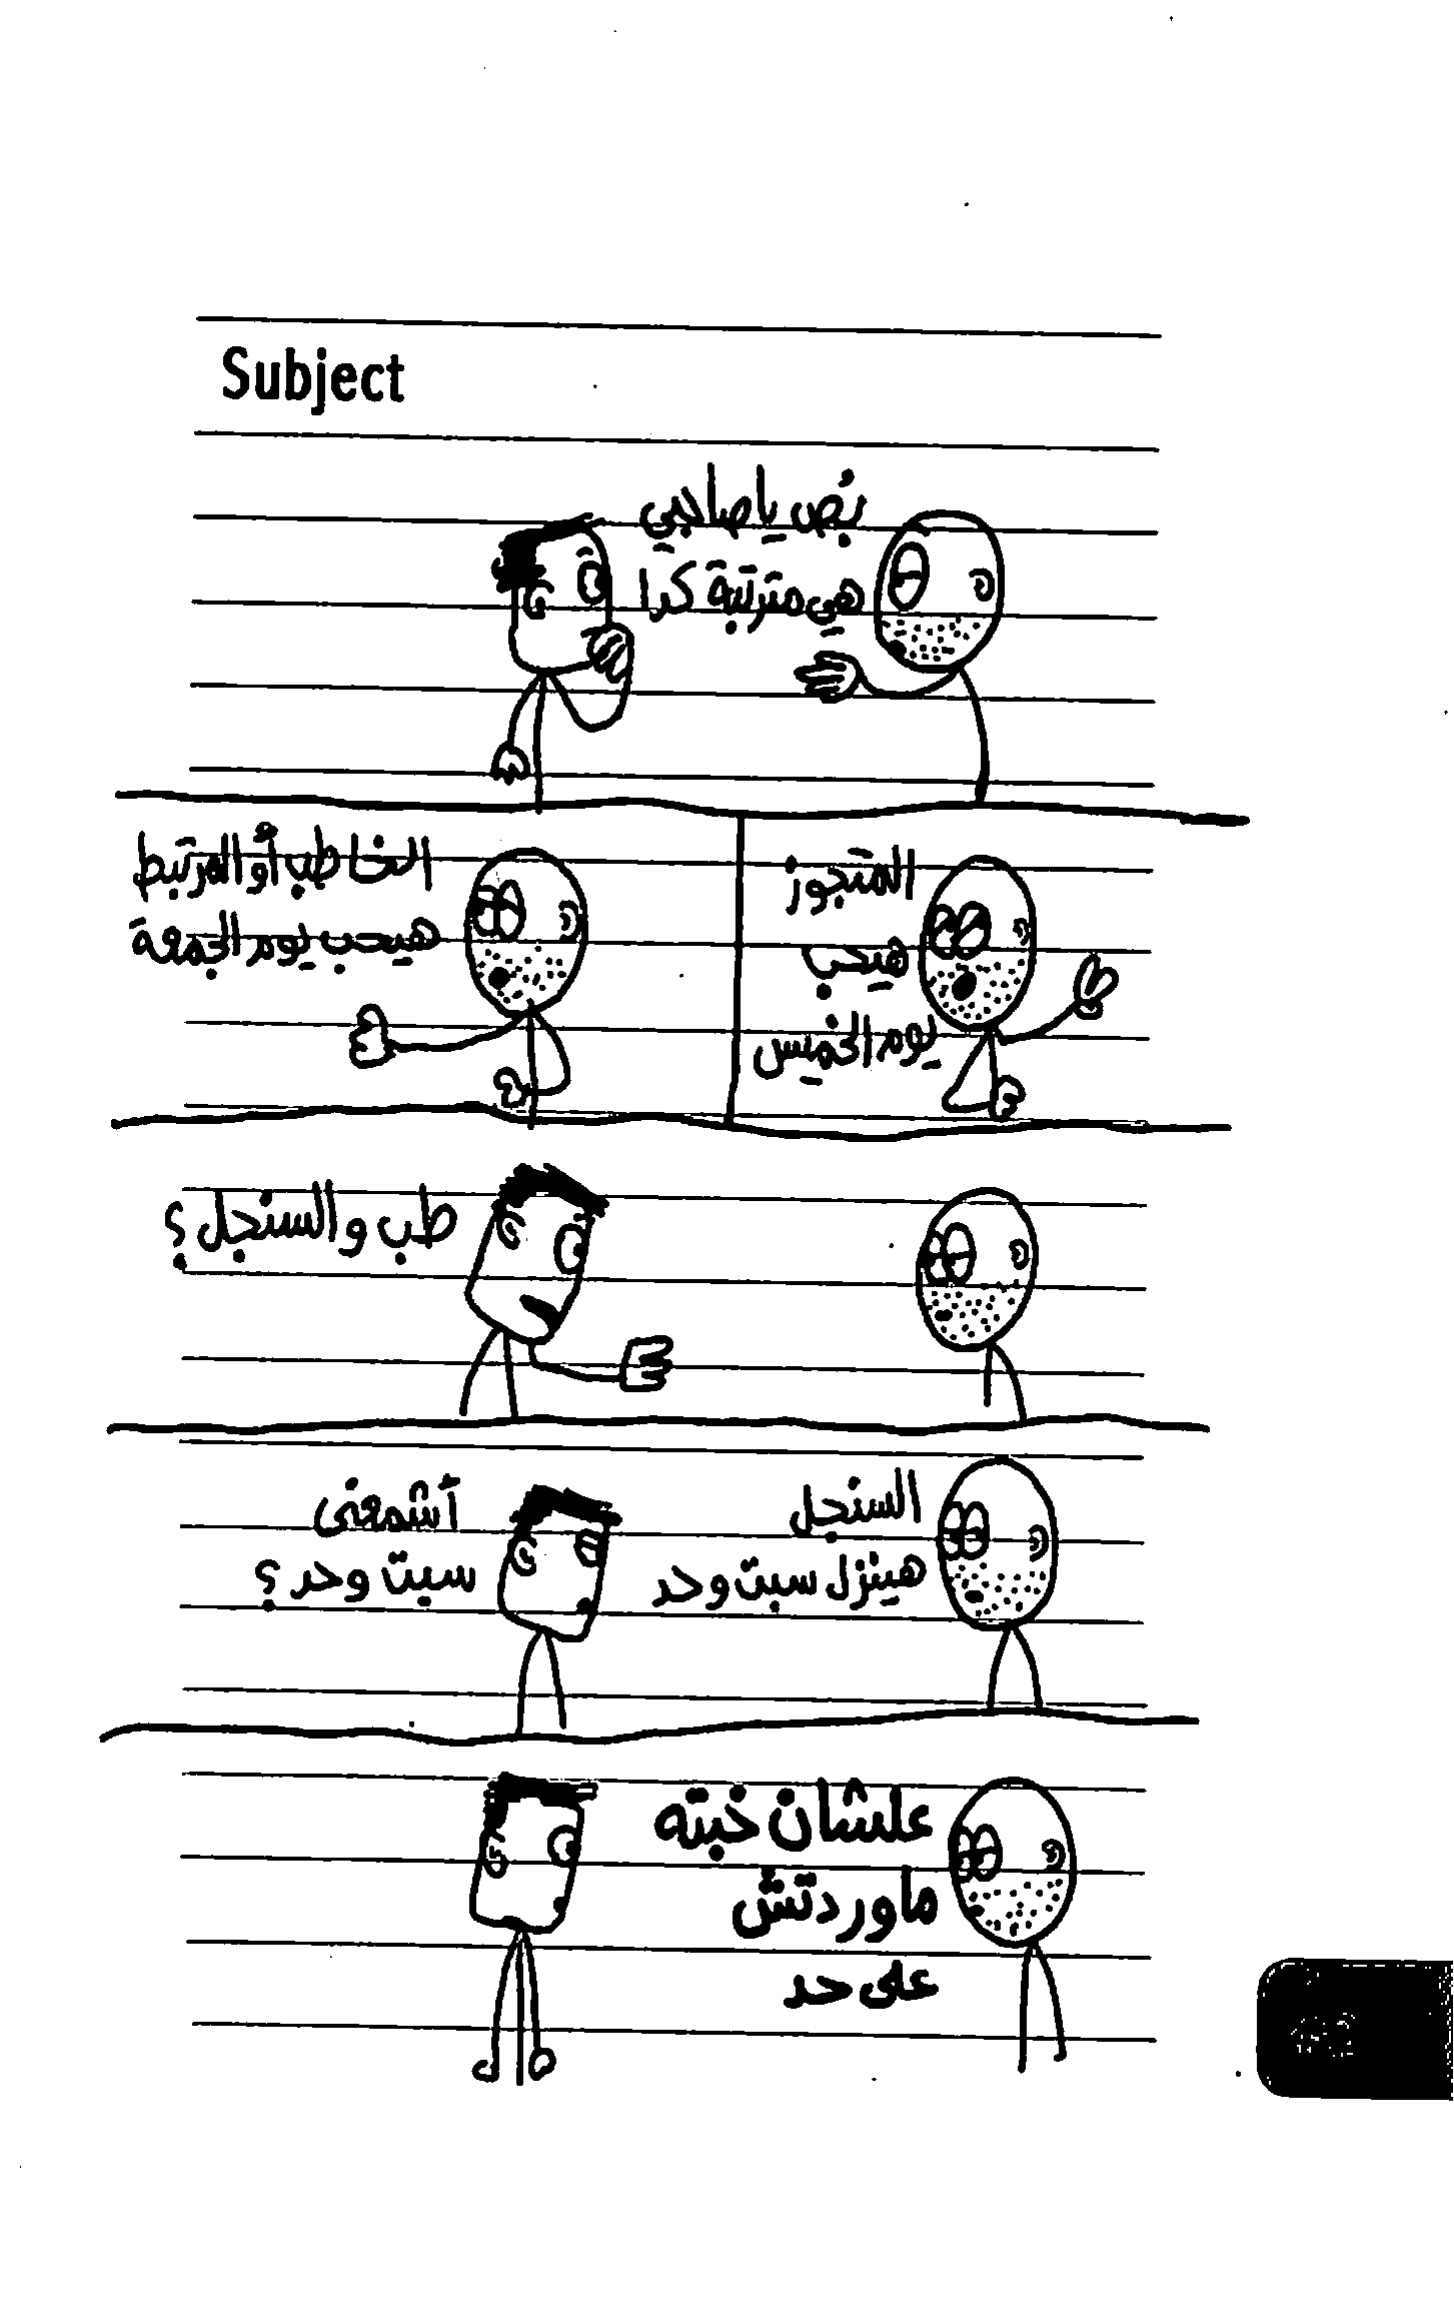 Subject
بُص يا صاحبي
هي مترتبة كدا
المتجوز
هيحب
يوم الخميس
الخاطب أو المرتبط
هيحب يوم الجمعة
طب والسنجل؟
السنجل
هينزل سبت وحد
أشمعنى
سبت وحد؟
علشان خبته
ماوردتش
على حد